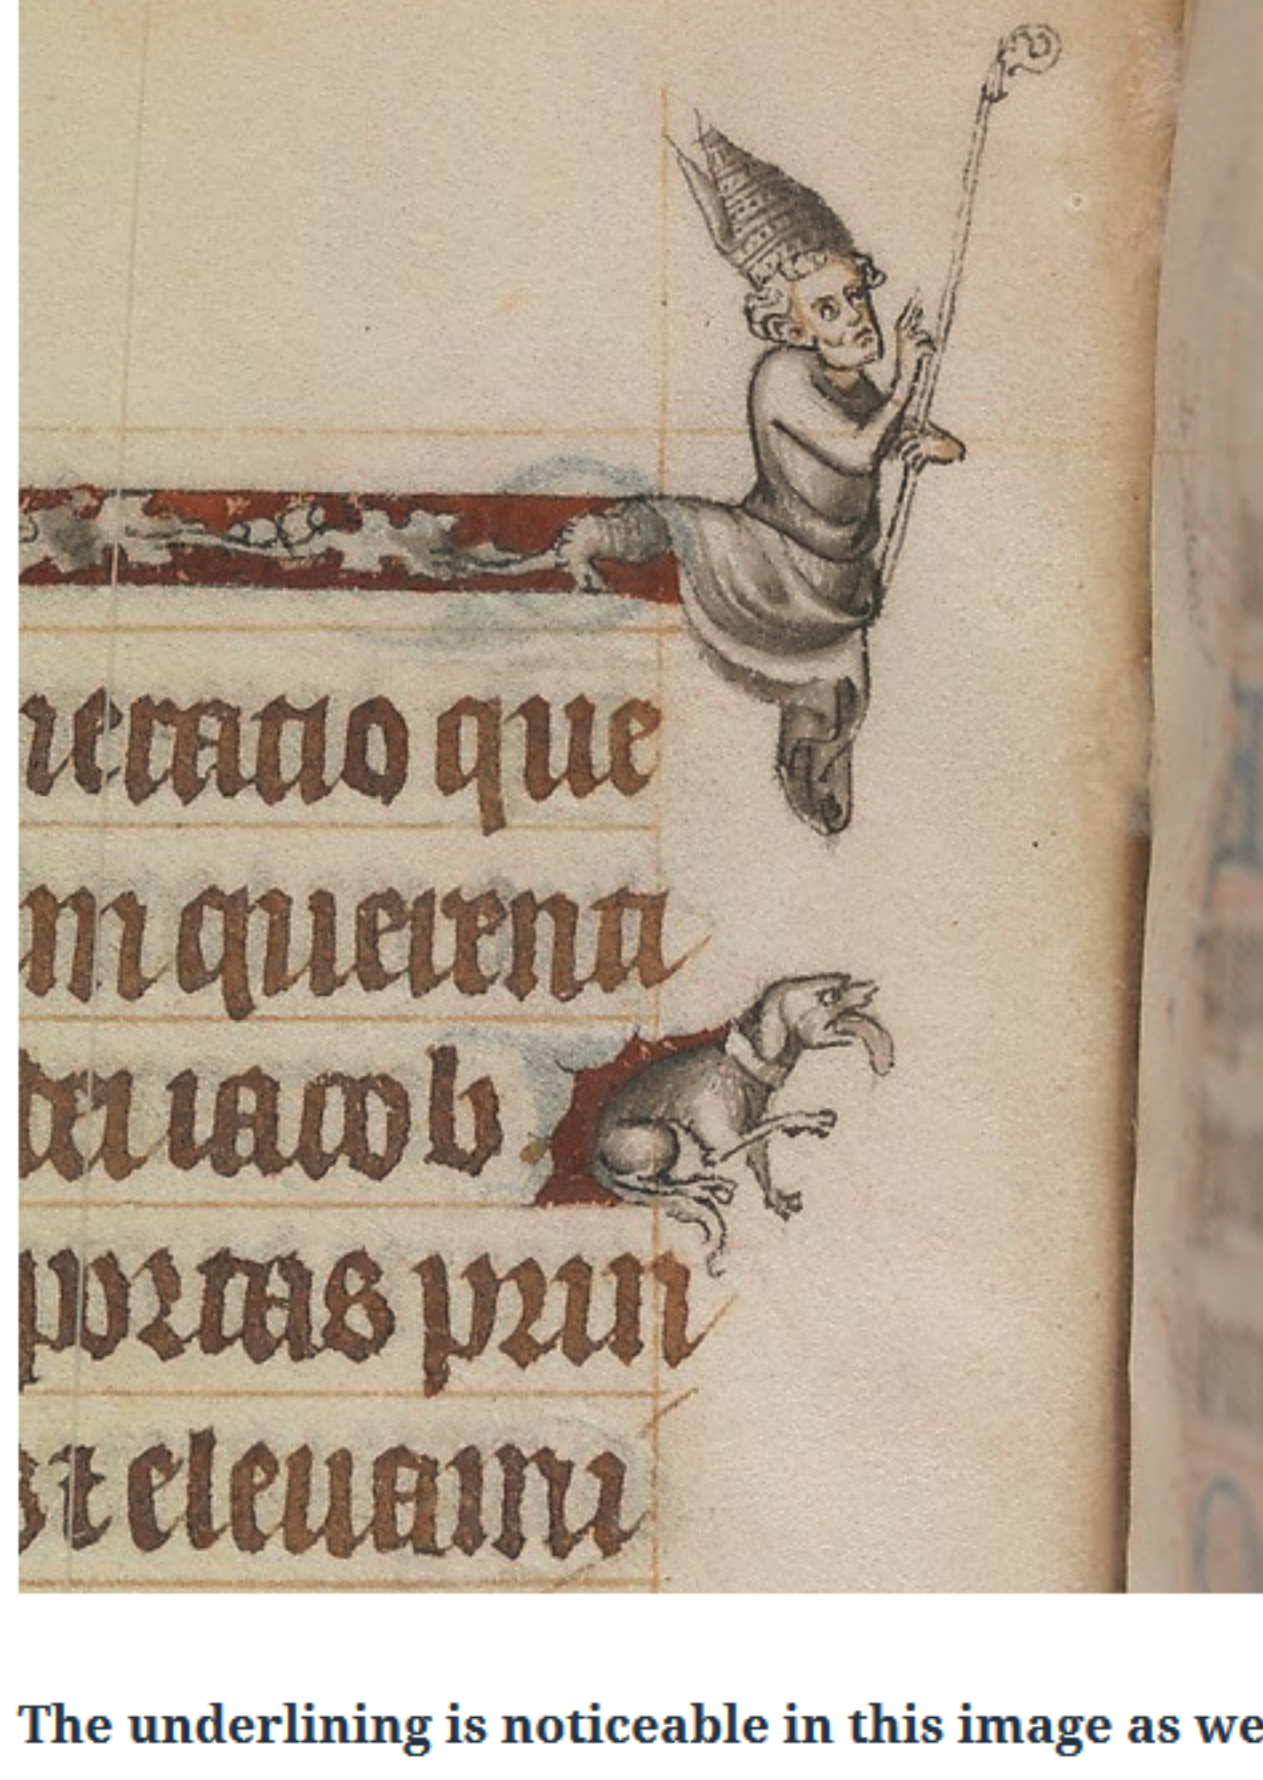 neratio que
m querenti
dei iacob
portas prin
et eleuamini
The underlining is noticeable in this image as we